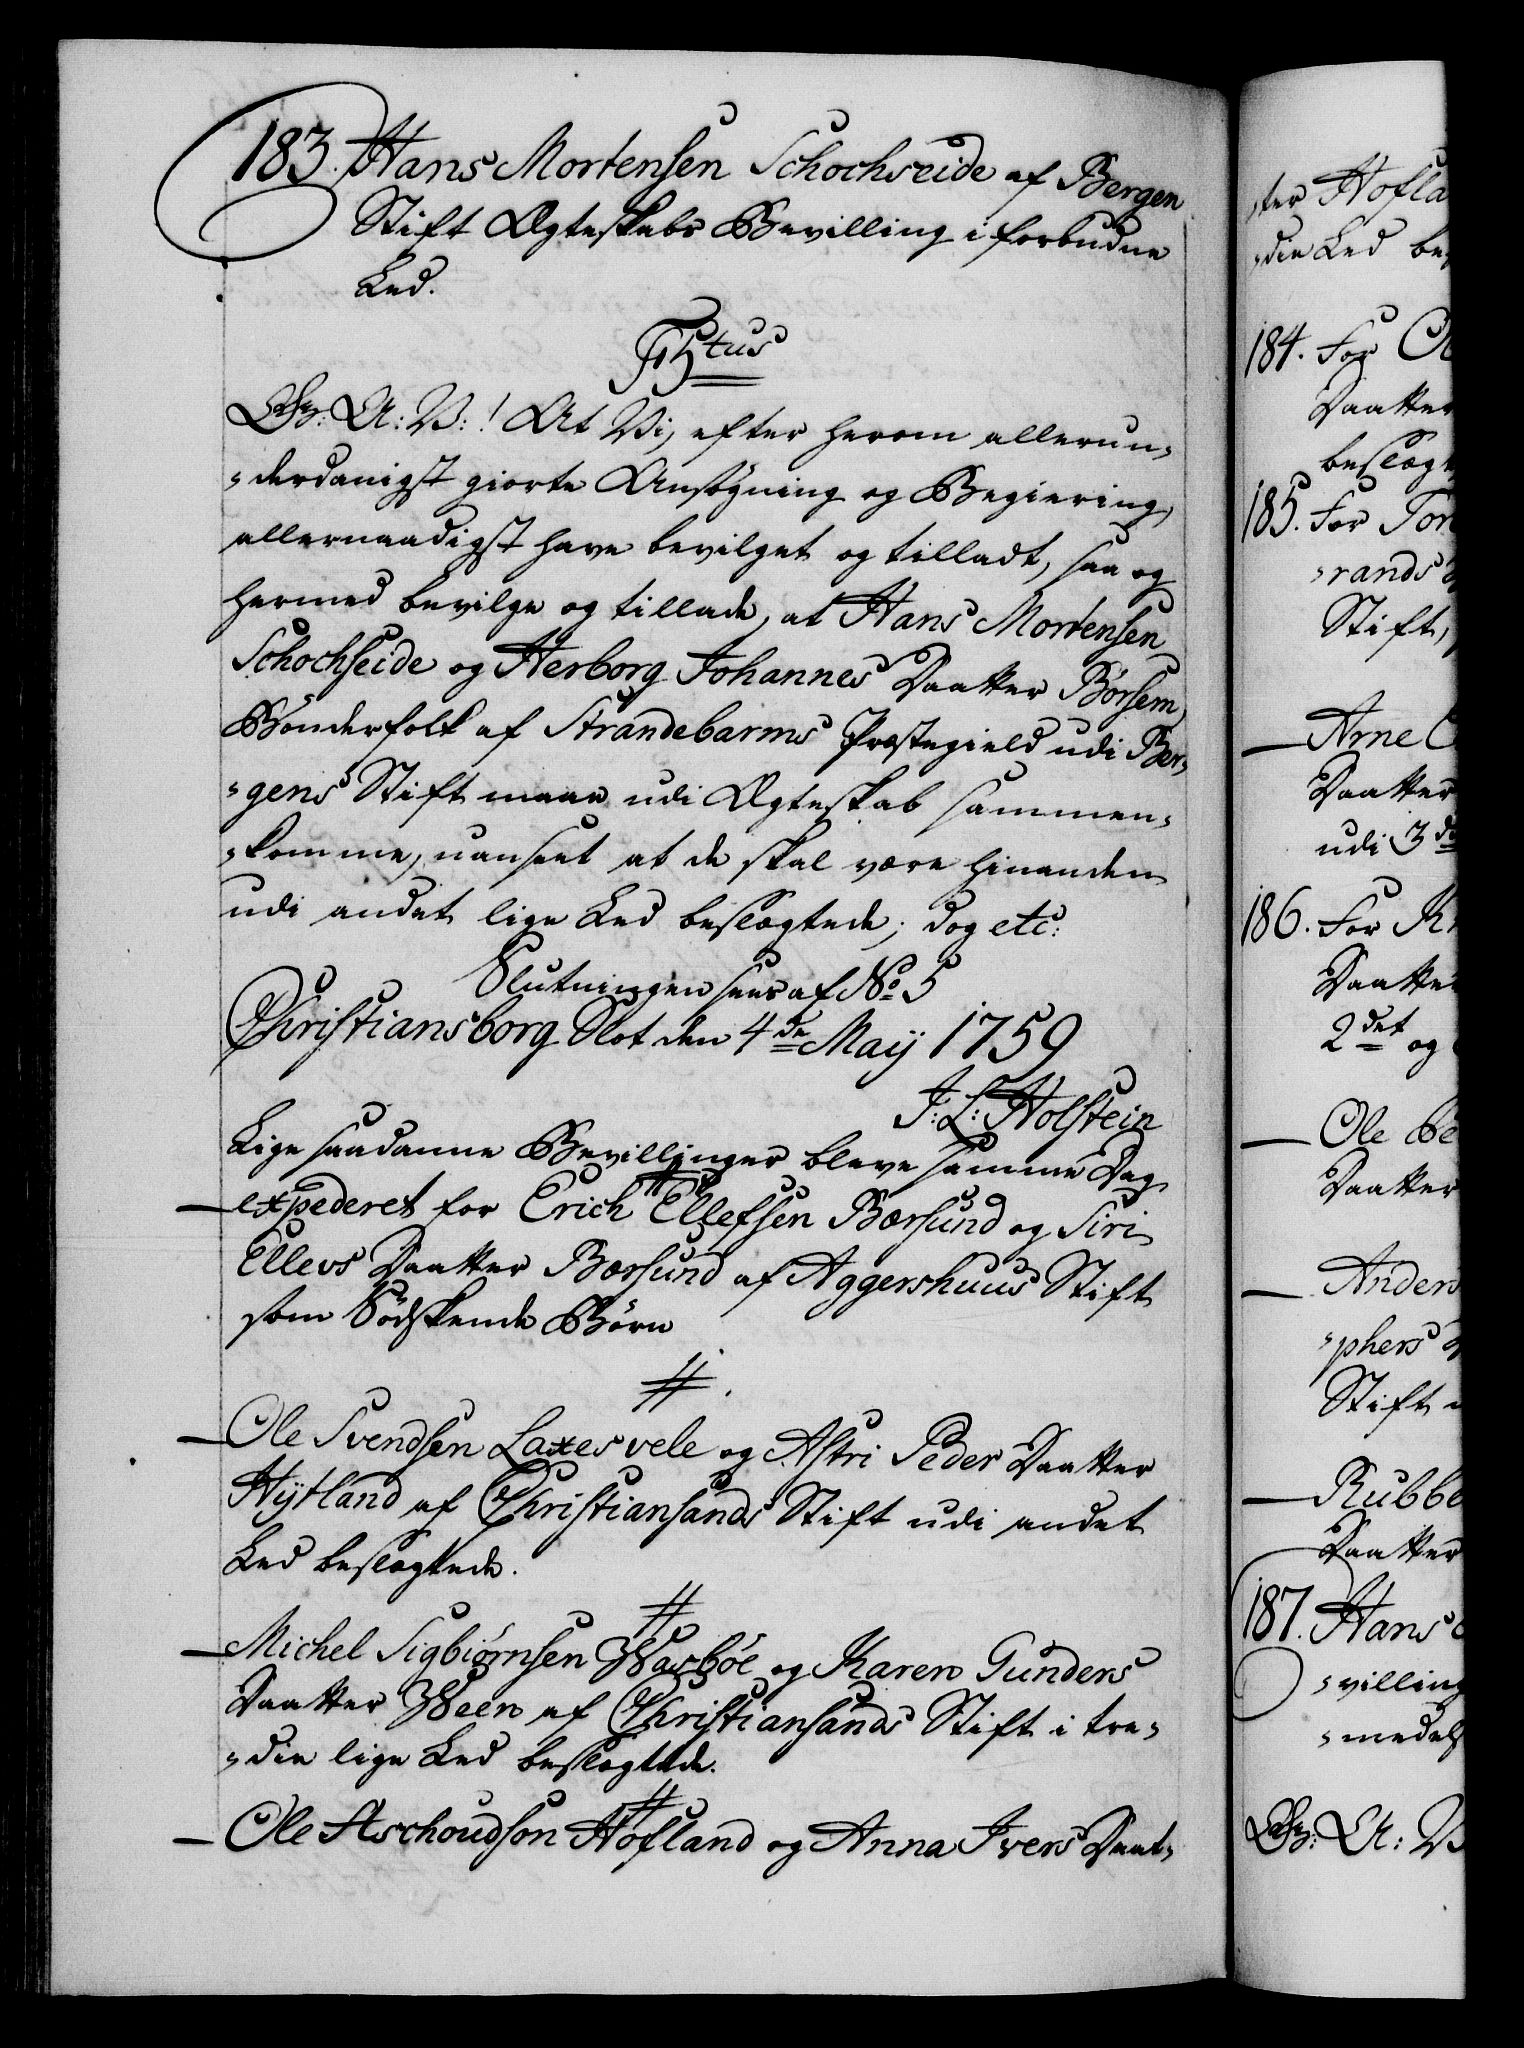 183. Hans Mortensen Schochseide af Bergen
Stift Ægteskabs Bevilling i forbudne
Led.
F5tus
G: A: V: ! At Vi, efter herom allerun-
-derdanigst giorte Ansøgning og Begiering,
allernaadigst have bevilget og tilladt, saa og
hermed bevilge og tillade, at Hans Mortensen
Schochseide og Herborg Johannes Daatter Børsem,
Bønderfolk af Strandebarms Præstegield udi Ber-
-gens Stift maae udi Ægteskab sammen-
-komme, uanseet at de skal være hinanden
udi andet lige Led beslægtede; dog etc:
Slutningen sees af No 5
Christiansborg Slot den 4de Maij 1759
J: L: Holstein
Lige saadanne Bevillinger bleve samme Dag
expederet for Erich Ellefsen Bærsund og Siri
Ellevs Daatter Bærsund af Aggershuus Stift
som Sødskende Børn
Ole Svendsen Laxesvele og Astri Peder Daatter
Hytland af Christiansands Stift udi andet
Led beslægtede.
Michel Sigbiørnsen Wasbøe og Karen Gunders
Daatter Ween af Christiansands Stift i tre-
-die lige Led beslægtede.
Ole Aschoudsøn Hofland og Anna Ivers Daat-
-ter Hofla
-die Led be
184. For
Daatter
beslægt
185. For Tor
-rands
Stift,
Arne
Daatter
udi 3die
186. For
Daatter
2det og
Ole
Daatter
Anders
-phers
Stift
Rubbe
Daatter
187. Hans
-villing
-medels
G: A: V